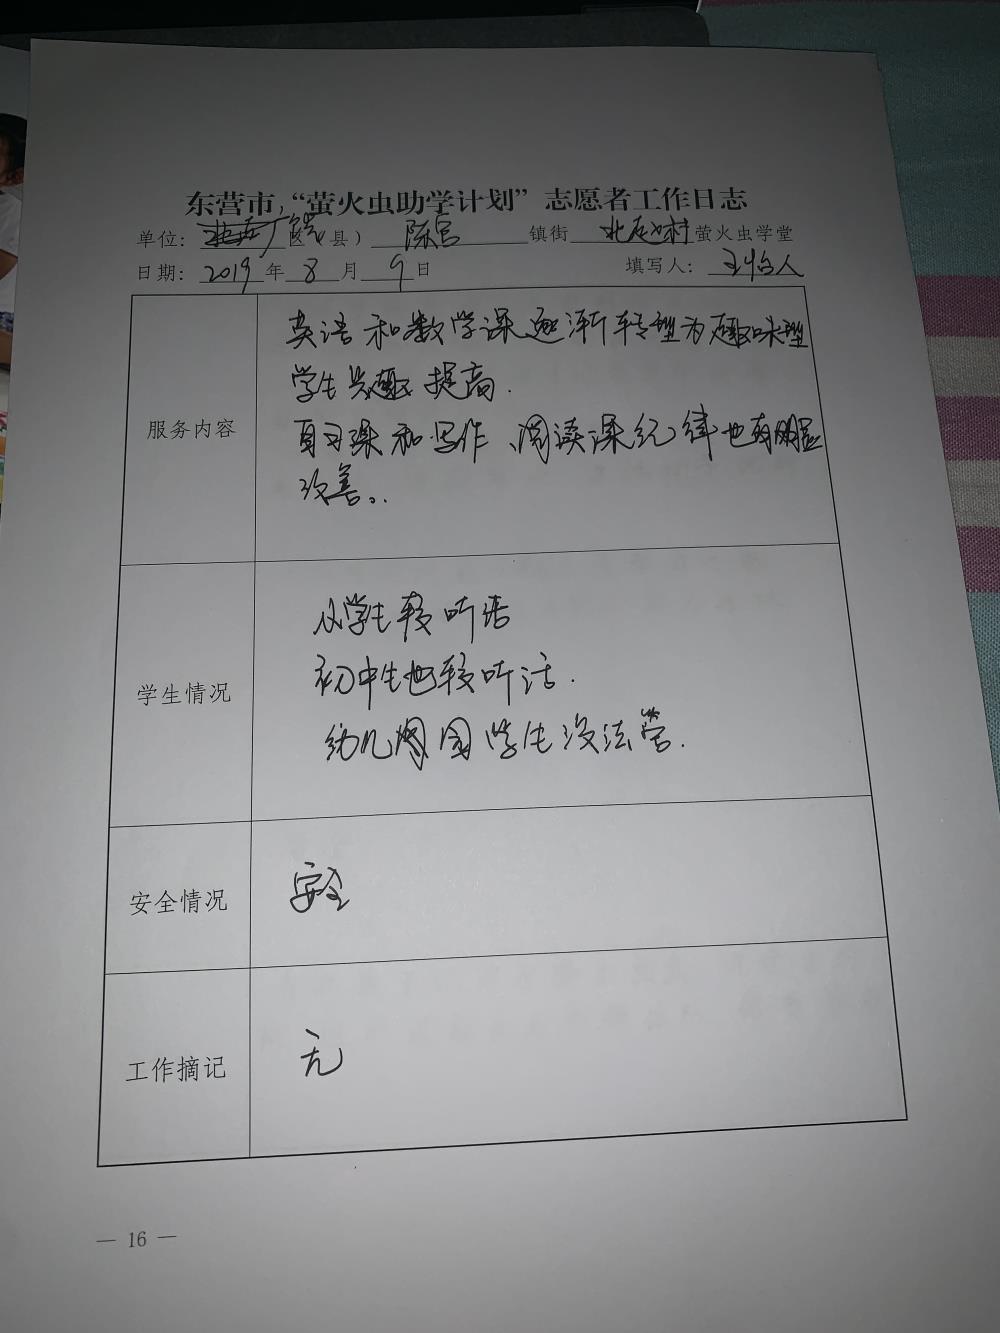 东营市“萤火虫助学计划”志愿者工作日志
单位: 广饶区(县) 陈官 镇街 北赵村 萤火虫学堂
日期: 2019 年 8 月 9 日 填写人: 王 人
服务内容
英语和数学课逐渐转型为趣味型
学生兴趣提高.
自习课和写作、阅读课纪律也有明显
改善。
学生情况
小学生较听话
初中生也较听话.
幼儿园学生没法管.
安全情况
安全
工作摘记
无
— 16 —